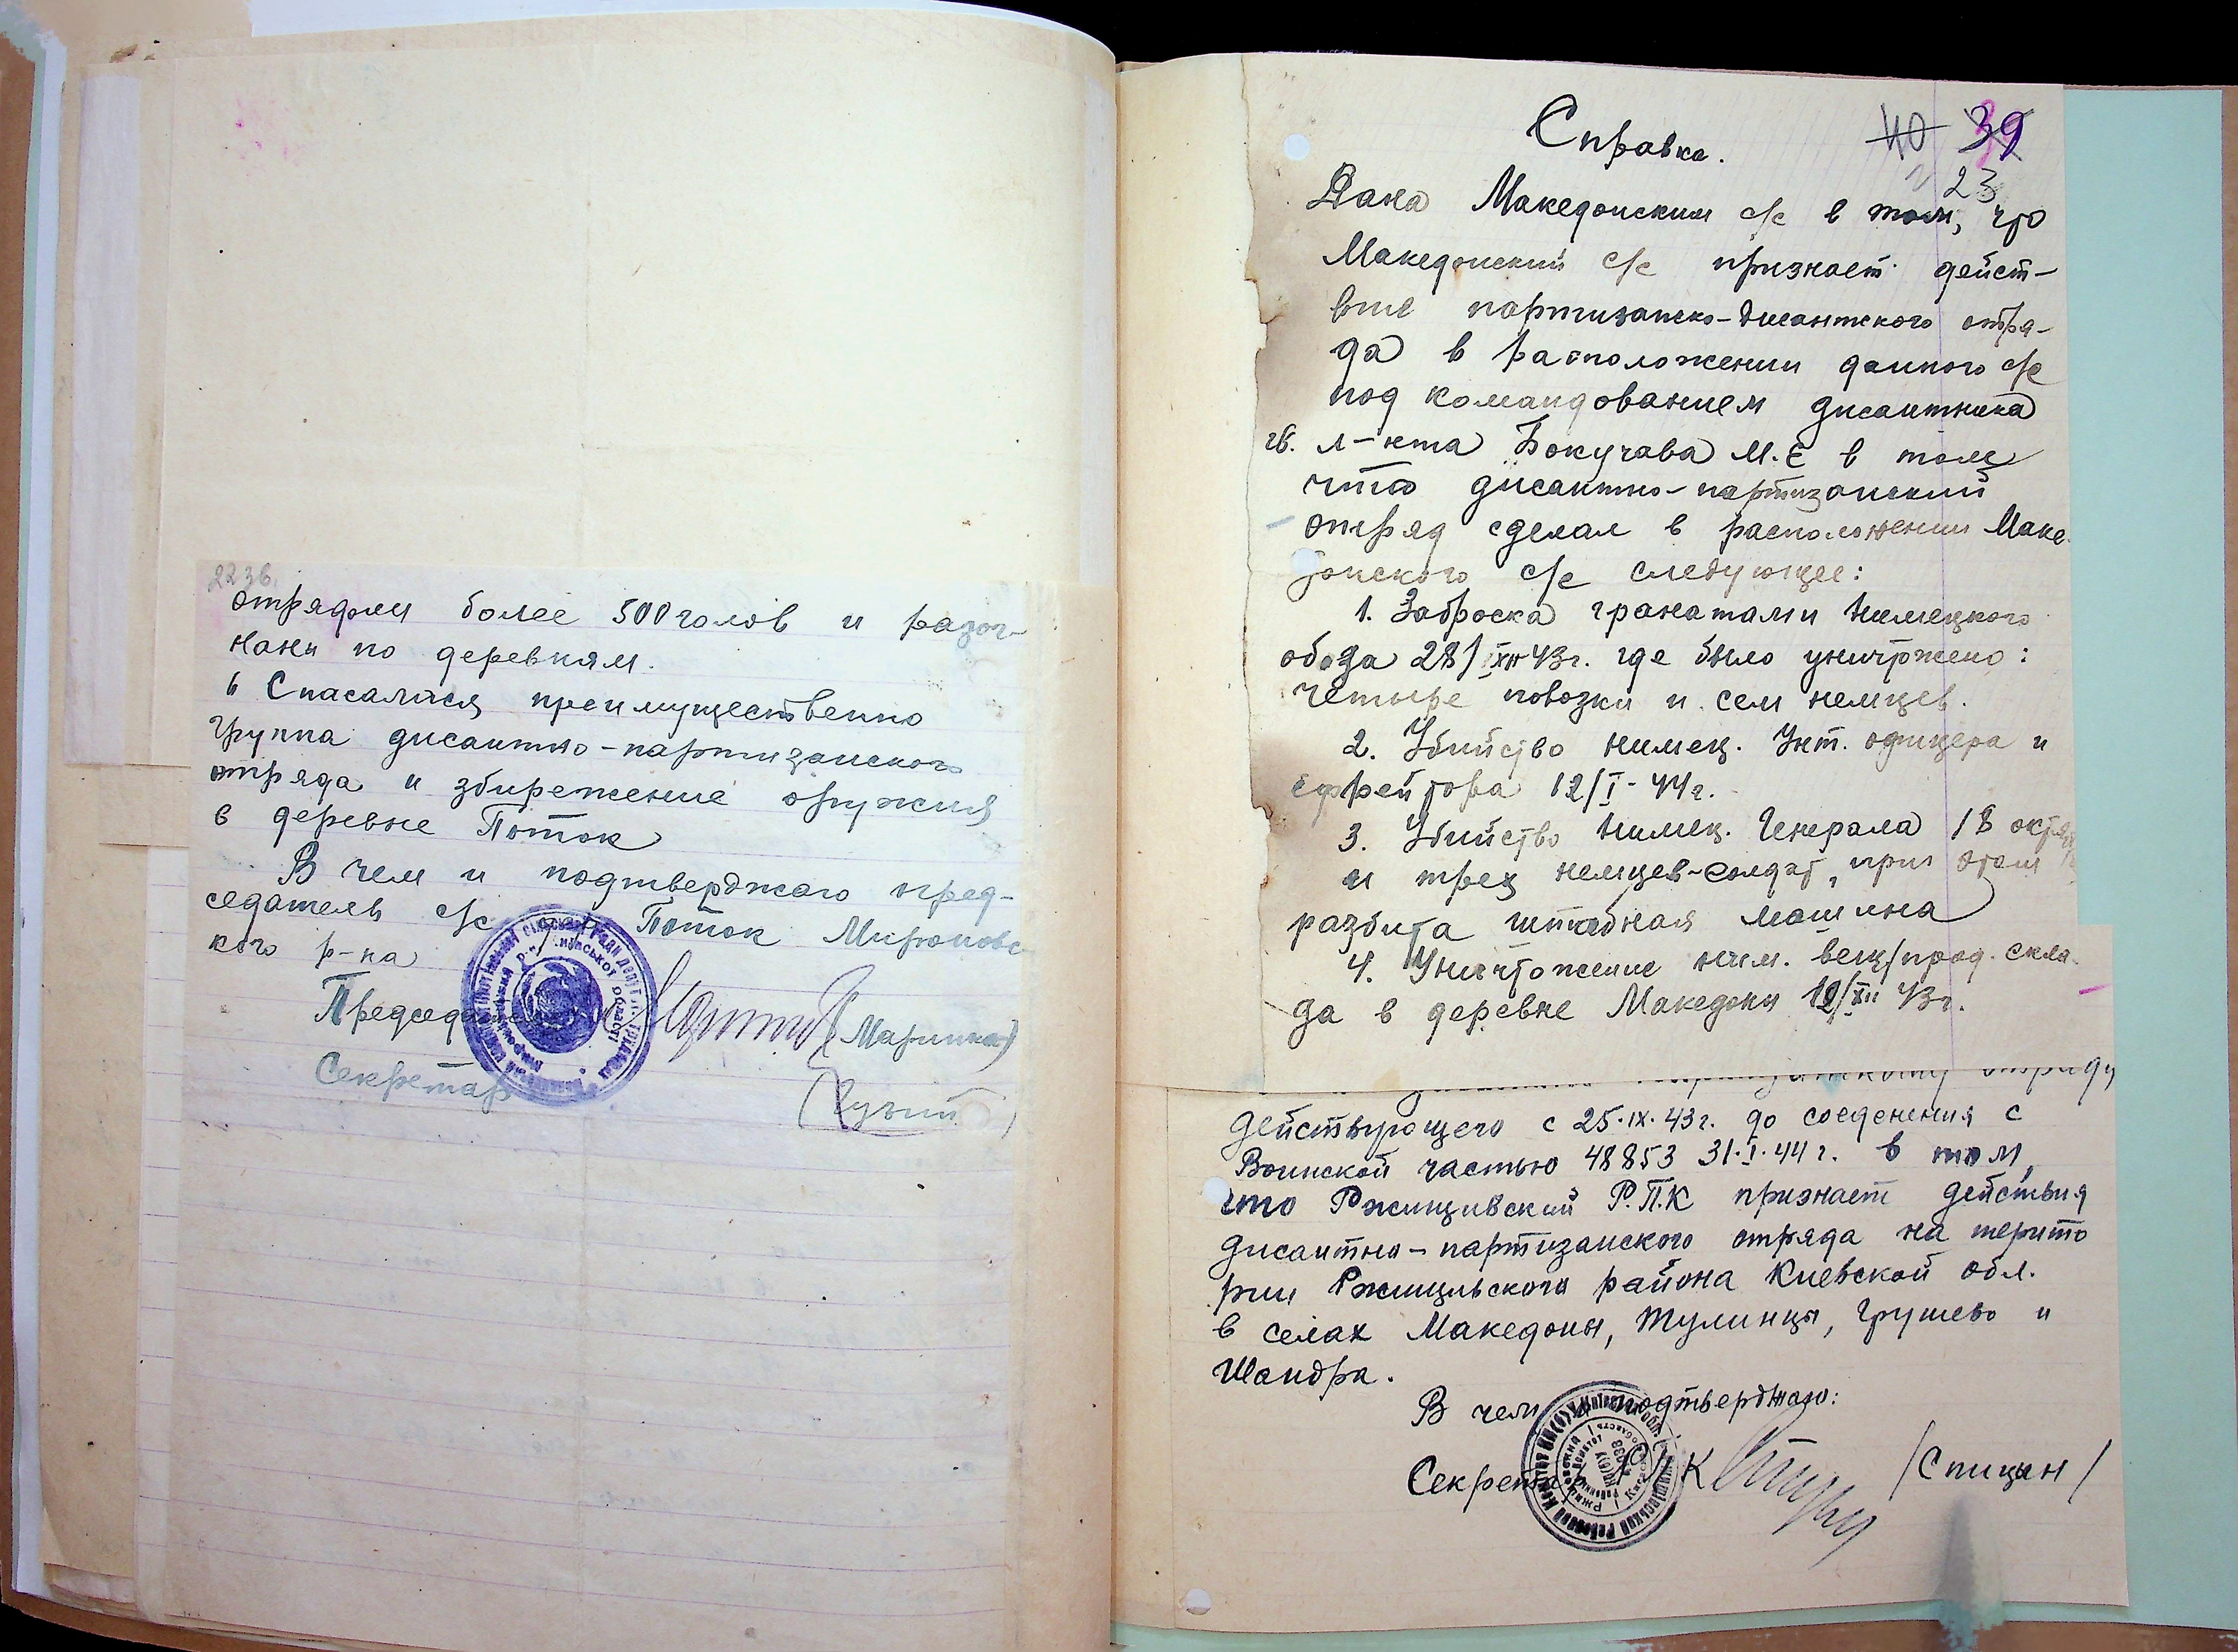 22 зв.
отрядом более 500 голов и разог-
нани по деревням.
6 Спасалися преимущественно
группа дисантно-партизанского
отряда и збирежение оружия
в деревне Поток
В чем и подтверджаю пред-
седатель с/с Поток Мироновс-
кого р-на
Председатель (Маринка)
Секретар
Справка.
40 39
23
Дана Македонским с/с в том, что
Македонский с/с признает дейст-
вие партизанско-дисантского отря-
да в расположении данного с/с
под командованием дисантника
гв. л-нта Бокучава М.Е в том
что дисантно-партизанский
отряд сделал в расположении Маке-
донского с/с следующее:
1. Заброска гранатами нимецкого
обоза 28/XII 43г. где было уничтржено:
четыре повозки и сем немцев.
2. Убийство нимец. Унт. офицера и
Ефрейтора 12/I-44г.
3. Убийство нимец. Генерала 18 октяб
и трех немцев-солдат, при этом
разбита штабная машина
4. Уничтожение ним. вещ/прод. скла-
да в деревне Македоны 12/XII 43г.
отряду
действующего с 25.IX.43г. до соеденения с
Воинской частью 48853 31.I.44г. в том,
что Ржищивский Р.П.К признает действия
дисантно-партизанского отряда на терито
рии Ржищивского района Киевской обл.
в селах Македоны, Тулинцы, Грушево и
Шандра.
В чем и подтверджаю:
Секретарь РПК /Спицын/